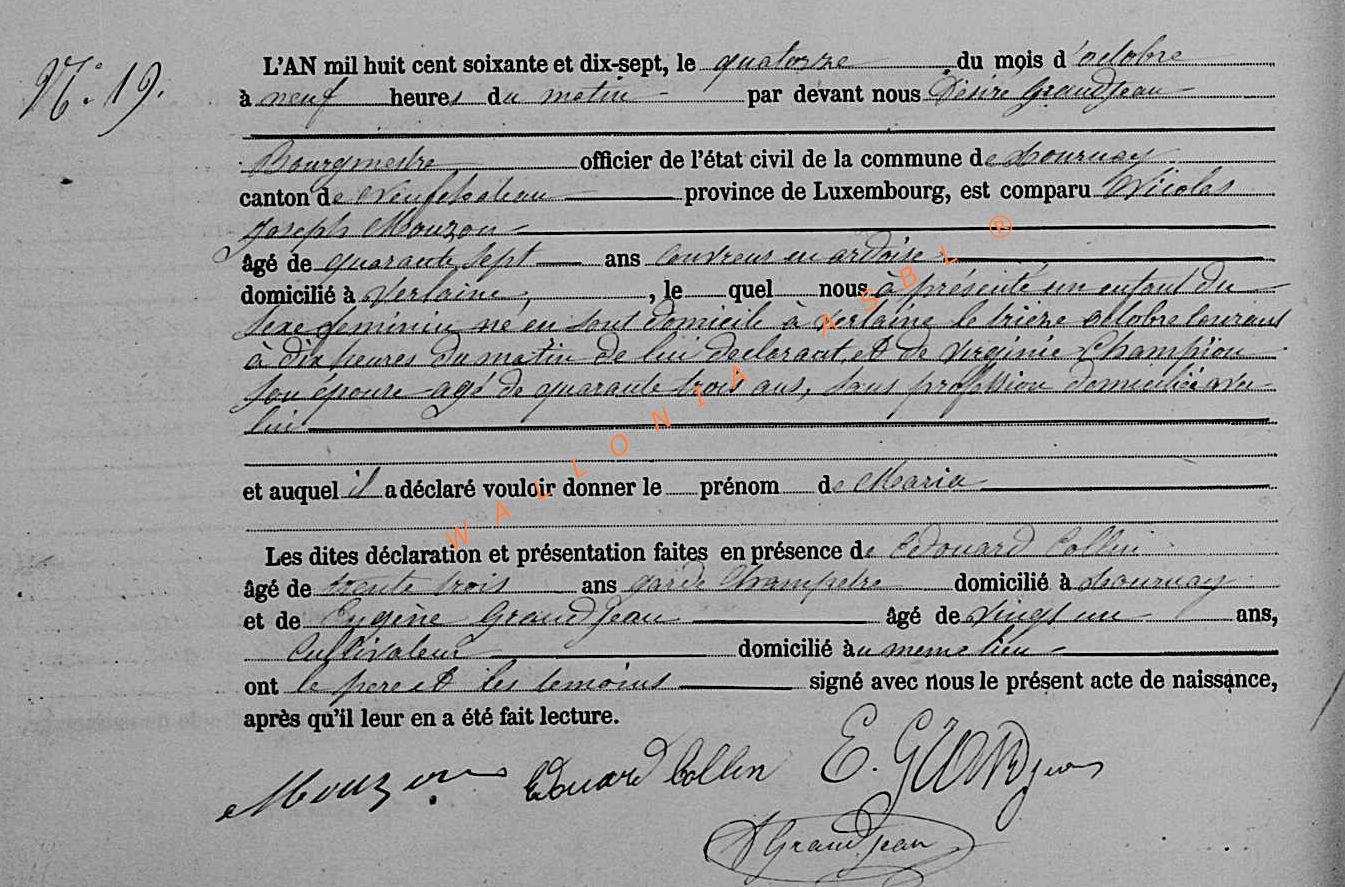 N.° 19.
L'AN mil huit cent soixante et dix-sept, le quatorze du mois d'octobre
à neuf heures du matin par devant nous Désiré Grandjean
Bourgmestre officier de l'état civil de la commune de Tournay
canton de Neufchateau province de Luxembourg, est comparu Nicolas
Joseph Mouzon
âgé de quarante sept ans couvreur en ardoise
domicilié à Verlaine, , le quel nous à présenté un enfant du
sexe feminin né en sont domicile à Verlaine le trieze octobre courant
à dix heures du matin de lui declarant, et de Virginie Champion
son épouse agé de quarante trois ans, sans profession domiciliée avec
lui
et auquel il a déclaré vouloir donner le prénom de Maria
Les dites déclaration et présentation faites en présence de Edouard Collin
âgé de trente trois ans garde Champetre domicilié à Tournay
et de Eugène Grandjean âgé de vingt un ans,
Cultivateur domicilié au meme lieu
ont le pere et les temoins signé avec nous le présent acte de naissance,
après qu'il leur en a été fait lecture.
Mouzon Edouard Collin E. Grandjean
D Grandjean
WALLONIA ASBL ®